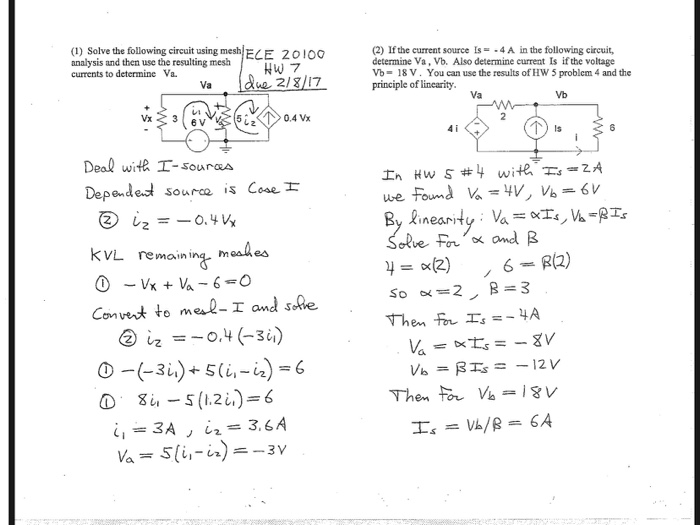 (1) Solve the following circuit using mesh
analysis and then use the resulting mesh
currents to determine Va.
ECE 20100
HW 7
due 2/8/17
Va
+
Vx
-
3
i₁
6 V
+
Va
-
5
i₂
0.4 Vx
Deal with I-sources
Dependent source is Case I
② i₂ = -0.4Vx
KVL remaining meshes
① -Vx + Va - 6 = 0
Convert to mesh-I and solve
② i₂ = -0.4(-3i₁)
① -(-3i₁) + 5(i₁-i₂) = 6
① 8i₁ - 5(1.2i₁) = 6
i₁ = 3A , i₂ = 3.6A
Va = 5(i₁-i₂) = -3V
(2) If the current source Is = - 4 A in the following circuit,
determine Va , Vb. Also determine current Is if the voltage
Vb = 18 V . You can use the results of HW 5 problem 4 and the
principle of linearity.
Va
Vb
2
4 i
Is
i
6
In HW 5 #4 with Is = 2A
we found Va = 4V, Vb = 6V
By linearity: Va = αIs, Vb = βIs
Solve for α and β
4 = α(2) , 6 = β(2)
so α = 2 , β = 3
Then for Is = -4A
Va = αIs = -8V
Vb = βIs = -12V
Then for Vb = 18V
Is = Vb/β = 6A